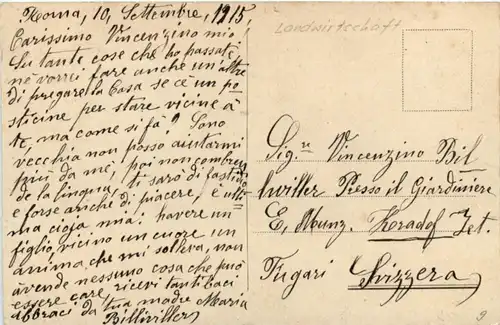 Roma, 10, Settembre, 1915,
Carissimo Vincenzino mio!
Su tante cose che ho passate
ne vorrei fare anche un'altre
di pregare la Casa se c'è un po
sticino per stare vicine à
te, ma come si fà? Sono
vecchia non posso aiutarmi
più da me, poi non
de la lingua, ti sarò di fastidio
e forse anche di piacere, è ulti
ma cioja mia! havere un
figlio vicino un cuore un
anima che mi solleva, non
avende nessuno cosa che può
essere care ricevi tanti baci
abbraci da tua madre Maria
Billwiller
Landwirtschaft
Sig.re Vincenzino Bil
lwiller Presso il Giardiniere
E, Munz.
Fugari Svizzera
9